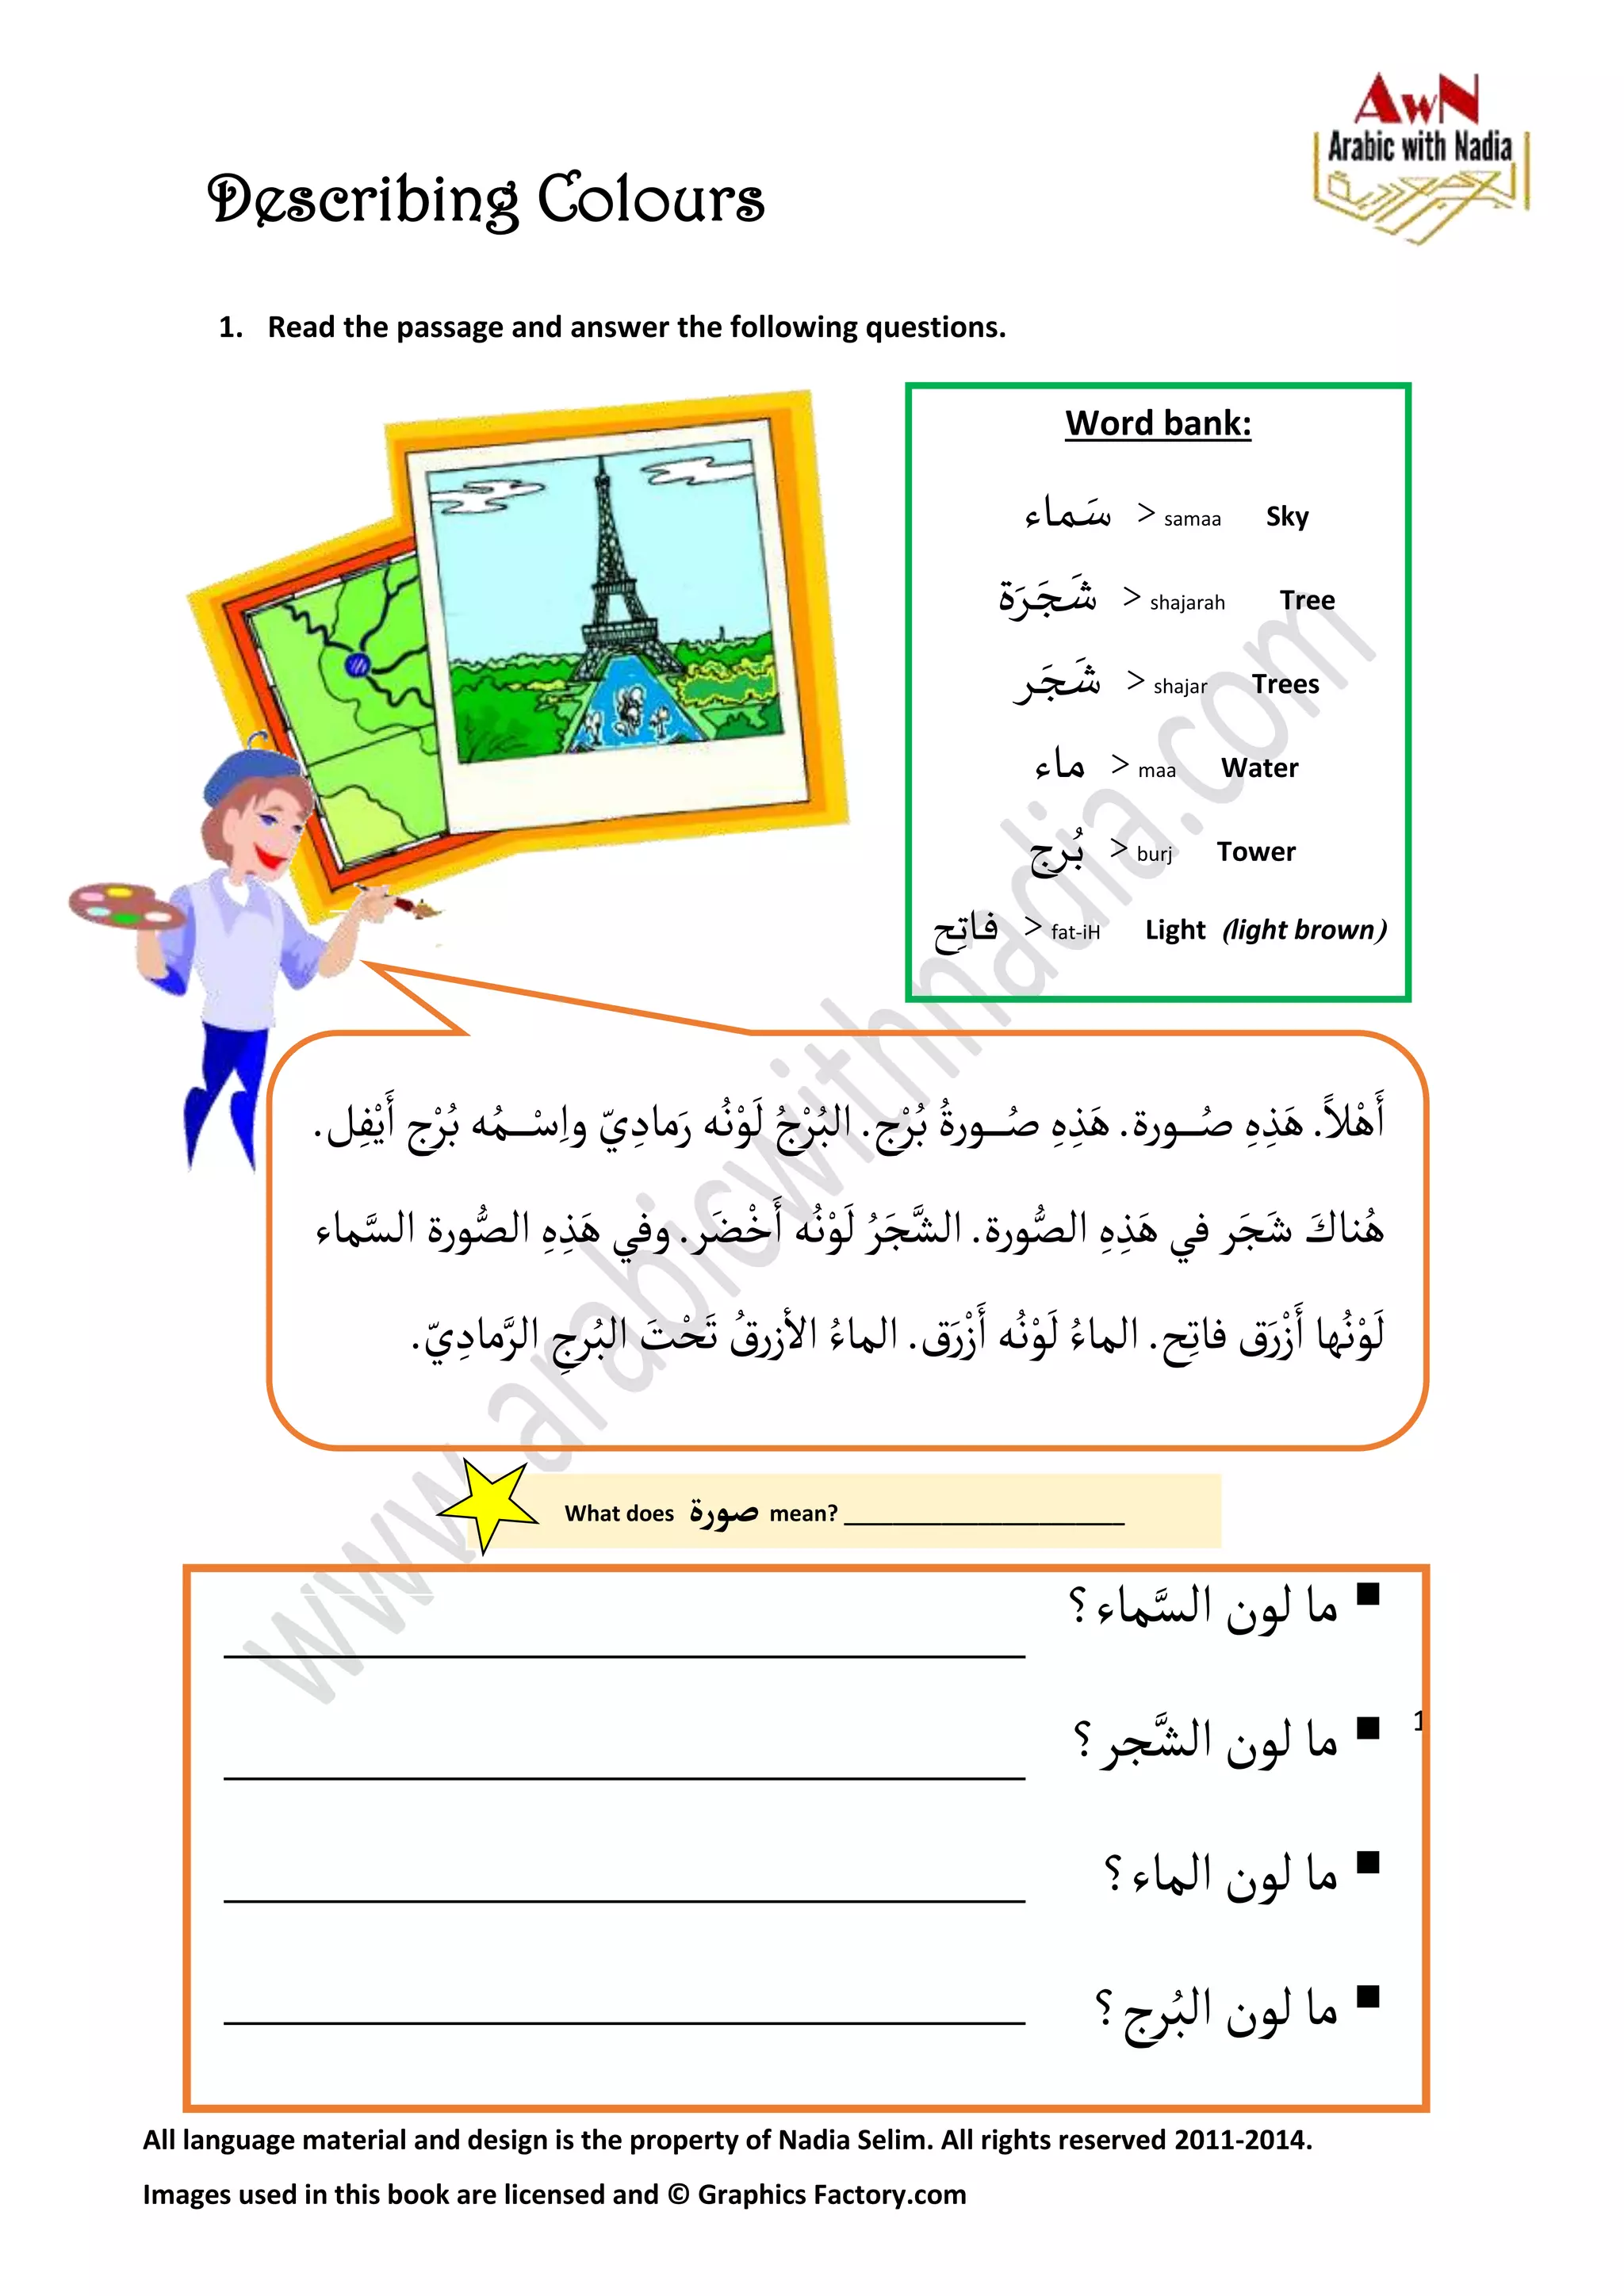 AwN
Arabic with Nadia
Describing Colours
1. Read the passage and answer the following questions.
Word bank:
سَماء > samaa Sky
شَجَرَة > shajarah Tree
شَجَر > shajar Trees
ماء > maa Water
بُرج > burj Tower
فاتِح > fat-iH Light (light brown)
أَهْلاً. هَذِهِ صُـــورة. هَذِهِ صُـــورةُ بُرْج. البُرْجُ لَوْنُه رَمادِيّ واِسْـــمُه بُرْج أَيْفِل.
هُناكَ شَجَر في هَذِهِ الصُّورة. الشَّجَرُ لَوْنُه أَخْضَر. وفي هَذِهِ الصُّورة السَّماء
لَوْنُها أَزْرَق فاتِح. الماءُ لَوْنُه أَزْرَق. الماءُ الأزرقُ تَحْتَ البُرجِ الرَّمادِيّ.
What does صورة mean? ____________________
ما لون السَّماء؟ ____________________
ما لون الشَّجر؟ ____________________
1
ما لون الماء؟ ____________________
ما لون البُرج؟ ____________________
All language material and design is the property of Nadia Selim. All rights reserved 2011-2014.
Images used in this book are licensed and © Graphics Factory.com
www.arabicwithnadia.com